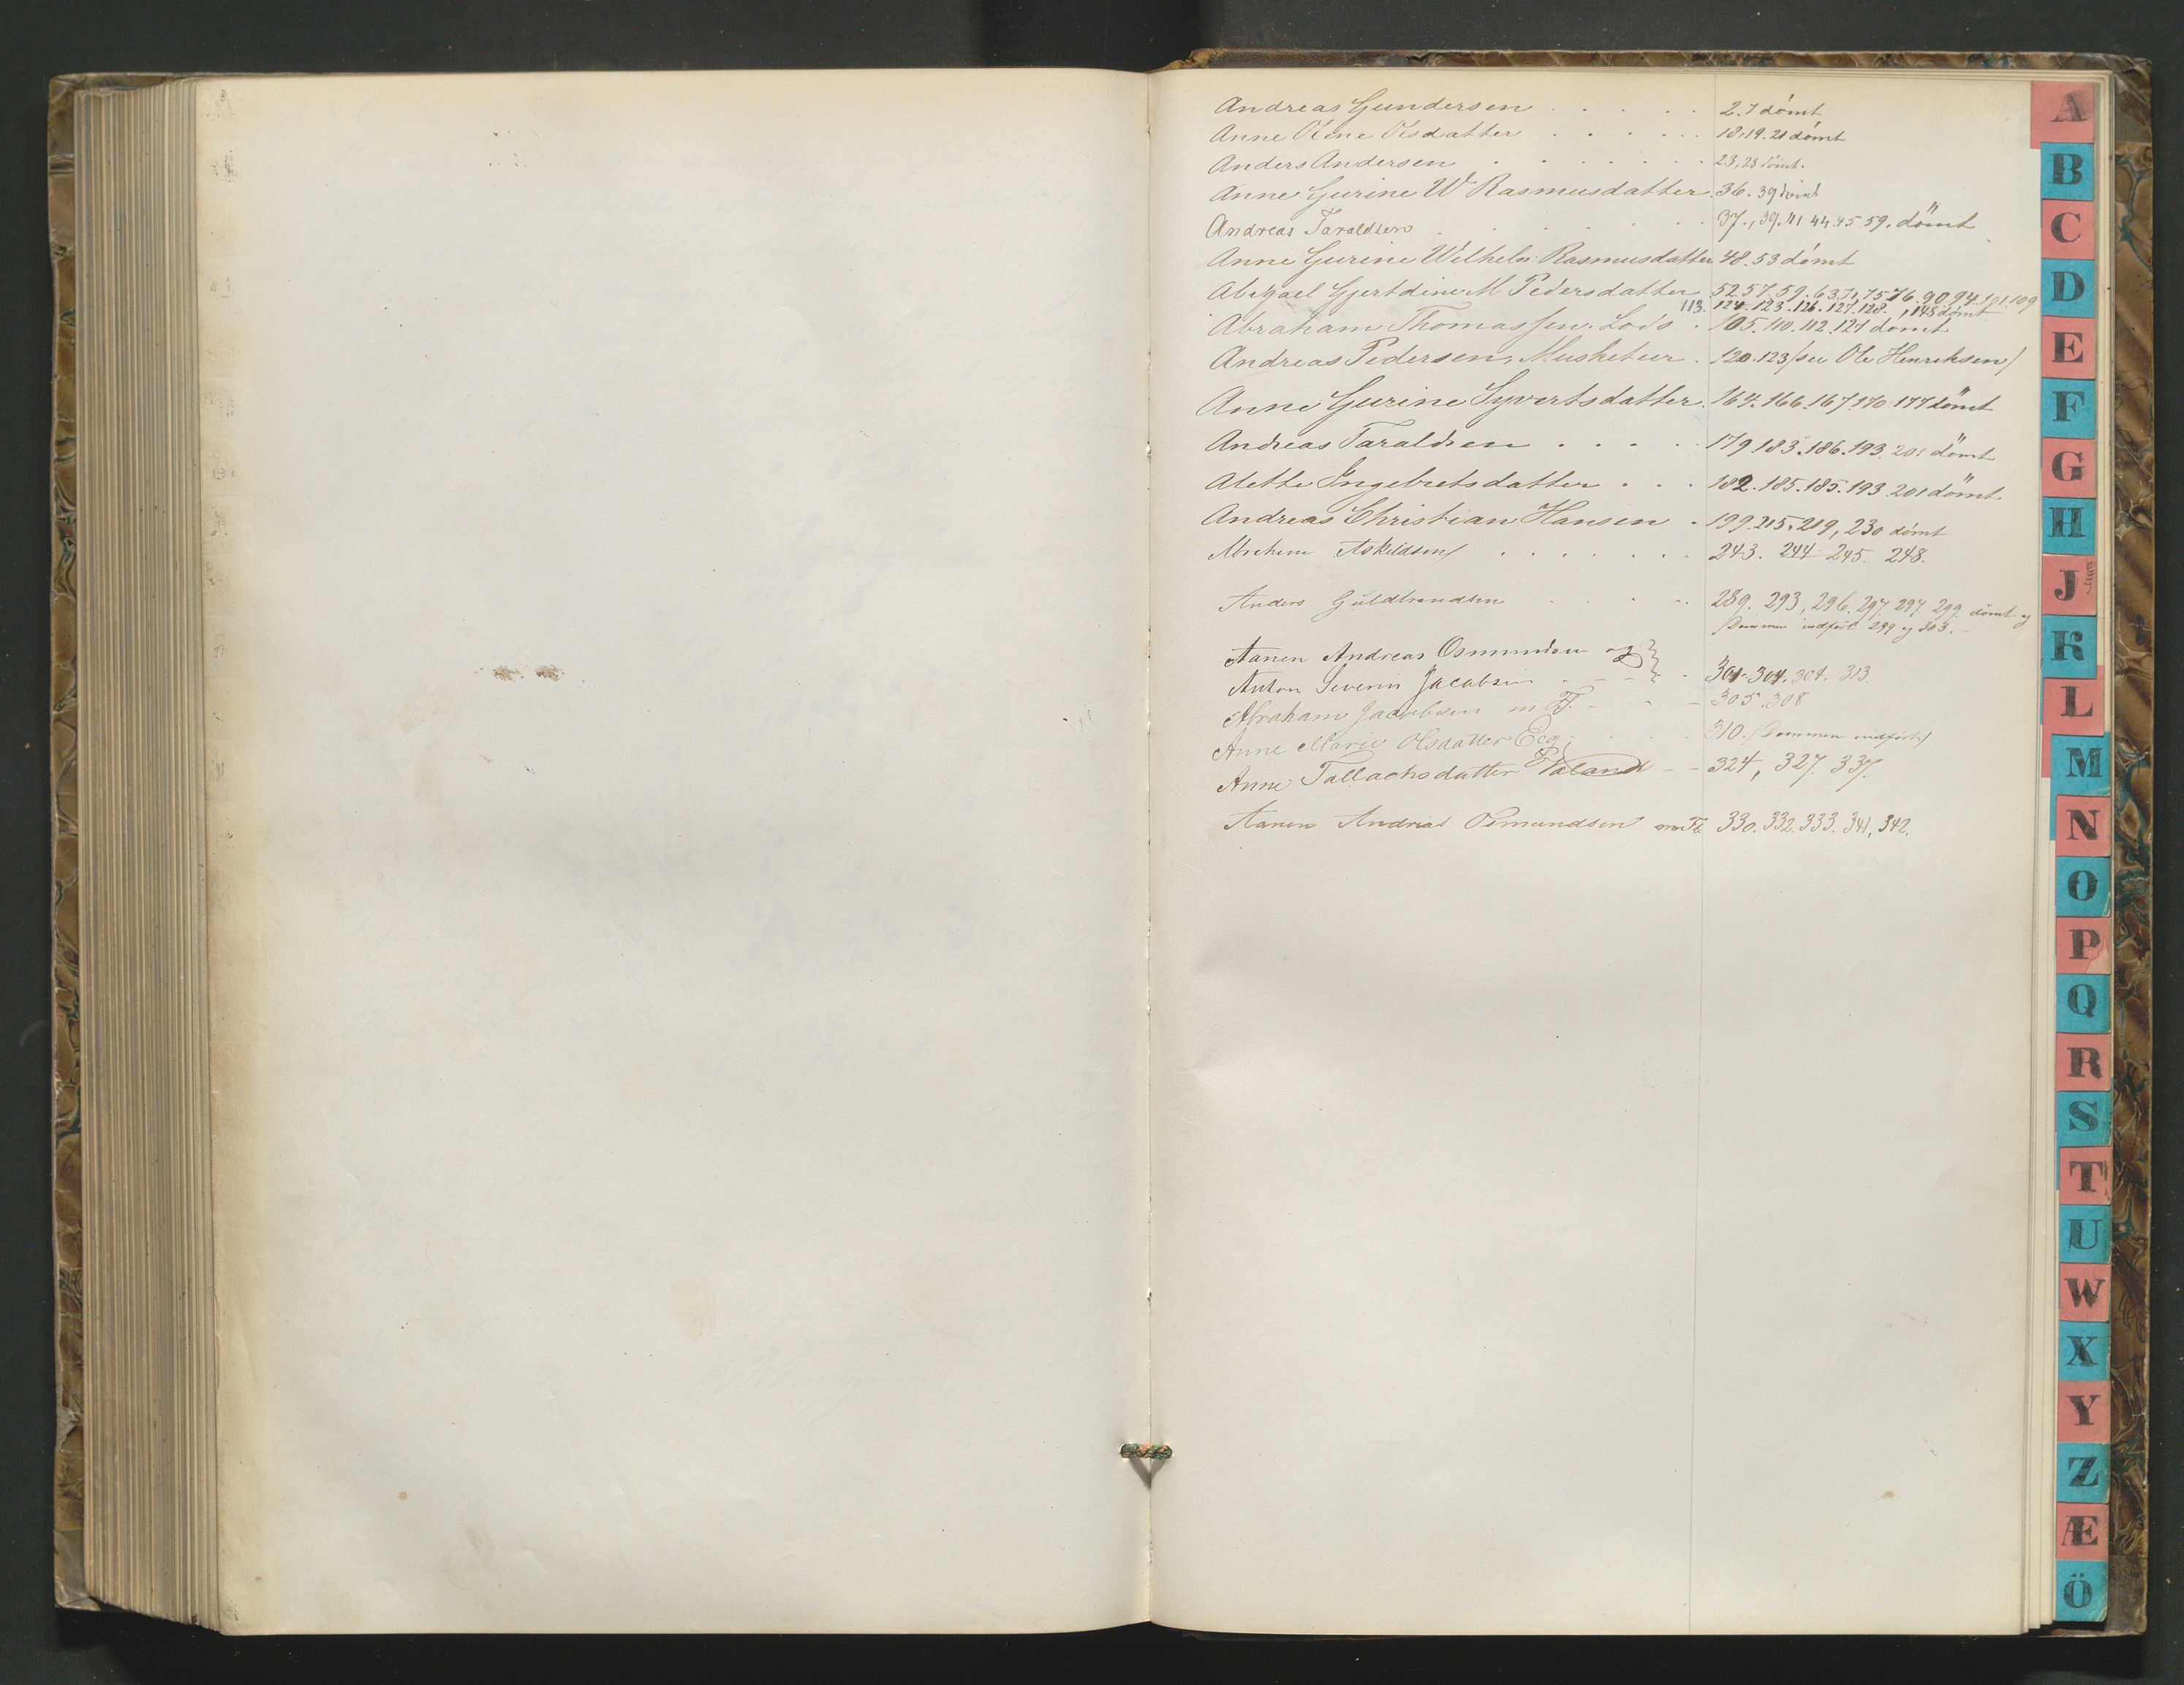 Andreas Gundersen . . . . . 2. 7 dömt
Anne Oline Olsdatter . . . . . 18. 19. 21 dömt
Anders Andersen . . . . . . . 23, 28 dömt.
Anne Gurine W Rasmusdatter. 36. 39 dömt
Andreas Taraldsen . . . . . . 37., 39. 41 44. 45 59. dömt
Anne Gurine Wilhelm. Rasmusdatter 48. 53 dömt
Abigael Gjertdine M Pedersdatter 52. 57. 59. 63. 71, 75 76. 90 94. 101. 109
113. 124. 123. 126. 127. 128. , 148 dömt
Abraham Thomassen. Lods . 105. 110. 112. 121 dömt
Andreas Pedersen, Musketeer . 120. 123 /see Ole Henriksen/
Anne Gurine Syvertsdatter. 164. 166. 167. 170 177 dömt
Andreas Taraldsen . . . . . 179. 183. 186. 193. 201 dömt
Alette Ingebretsdatter . . . 182. 185. 185. 193. 201 dömt
Andreas Christian Hansen . 199. 215. 219, 230 dömt
Abraham Askildsen . . . . . . . 243. 244 245. 248.
Anders Guldbrandsen . . . . 289. 293, 296. 297. 297. 299. dömt og
/Dommen indført 299 og 303.
Aanen Andreas Osmundsen og
Anton Severin Jacobsen . - - . 301. 304. 304. 313.
Abraham Jacobsen m Fl. - - - 305. 308
Anne Marie Olsdatter Eeg . . . 310. /Dommen indført/
Anne Tallachsdatter Valand - - 324, 327. 337.
Aanen Andreas Osmundsen m Fl. 330. 332. 333. 341, 342.
A
B
C
D
E
F
G
H
J
K
L
M
N
O
P
Q
R
S
T
U
W
X
Y
Z
Æ
Ö